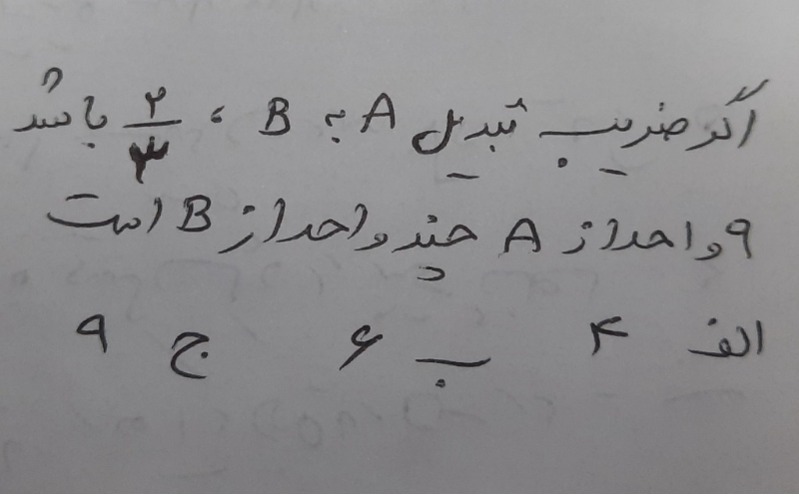 اگر ضریب تبدیل A به B، ۲/۳ باشد
۹ واحد از A چند واحد از B است
الف ۴ ب ۶ ج ۹